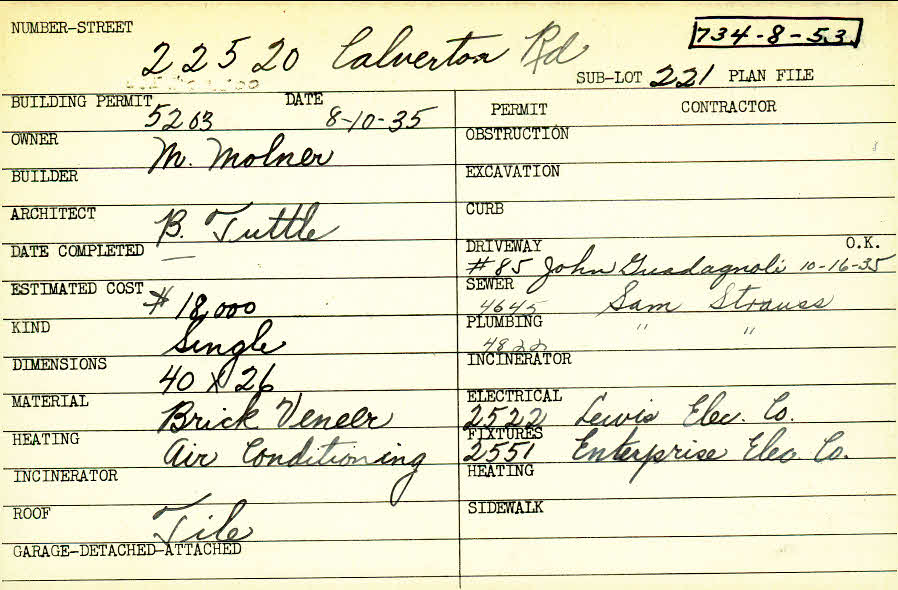 NUMBER-STREET
22520 Calverton Rd
734-8-53.
SUB-LOT 221 PLAN FILE
BUILDING PERMIT DATE
5203 8-10-35
OWNER
M. Molner
BUILDER
ARCHITECT
B. Tuttle
DATE COMPLETED
—
ESTIMATED COST
$18,000
KIND
Single
DIMENSIONS
40 x 26
MATERIAL
Brick Veneer
HEATING
Air Conditioning
INCINERATOR
ROOF
Tile
GARAGE-DETACHED-ATTACHED
PERMIT CONTRACTOR
OBSTRUCTION
EXCAVATION
CURB
DRIVEWAY O.K.
#85 John Guadagnoli 10-16-35
SEWER
4645 Sam Strauss
PLUMBING " "
4822
INCINERATOR
ELECTRICAL
2522 Lewis Elec. Co.
FIXTURES
2551 Enterprise Elec. Co.
HEATING
SIDEWALK